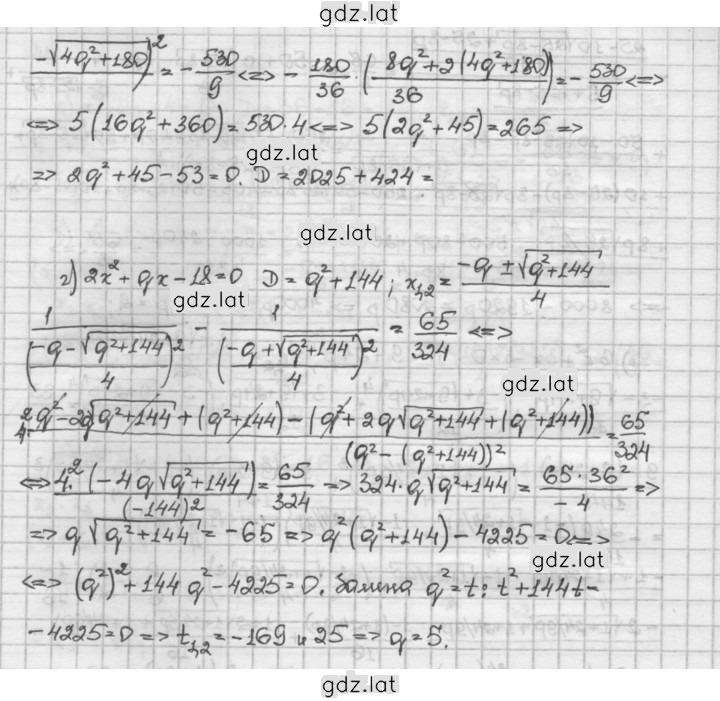 gdz.lat
-√(4q²+180))² = -530/9 <=> -180/36 · (8q²+2(4q²+180)/36) = -530/9 <=>
<=> 5(16q²+360) = 530·4 <=> 5(2q²+45) = 265 =>
gdz.lat
=> 2q²+45-53=0. D=2025+424=
gdz.lat
г) 2x²+qx-18=0 D=q²+144; x₁,₂ = (-q ± √(q²+144))/4
gdz.lat
1/((-q-√(q²+144))/4)² - 1/((-q+√(q²+144))/4)² = 65/324 <=>
gdz.lat
4²· (q²-2q√(q²+144)+(q²+144)-(q²+2q√(q²+144)+(q²+144)))/(q²-(q²+144))² = 65/324
<=> 4²·(-4q√(q²+144))/(-144)² = 65/324 => 324·q√(q²+144) = 65·36²/-4 =>
=> q√(q²+144) = -65 => q²(q²+144)-4225=0 <=>
gdz.lat
<=> (q²)²+144q²-4225=0. Замена q²=t: t²+144t-
-4225=0 => t₁,₂=-169 и 25 => q=5.
gdz.lat